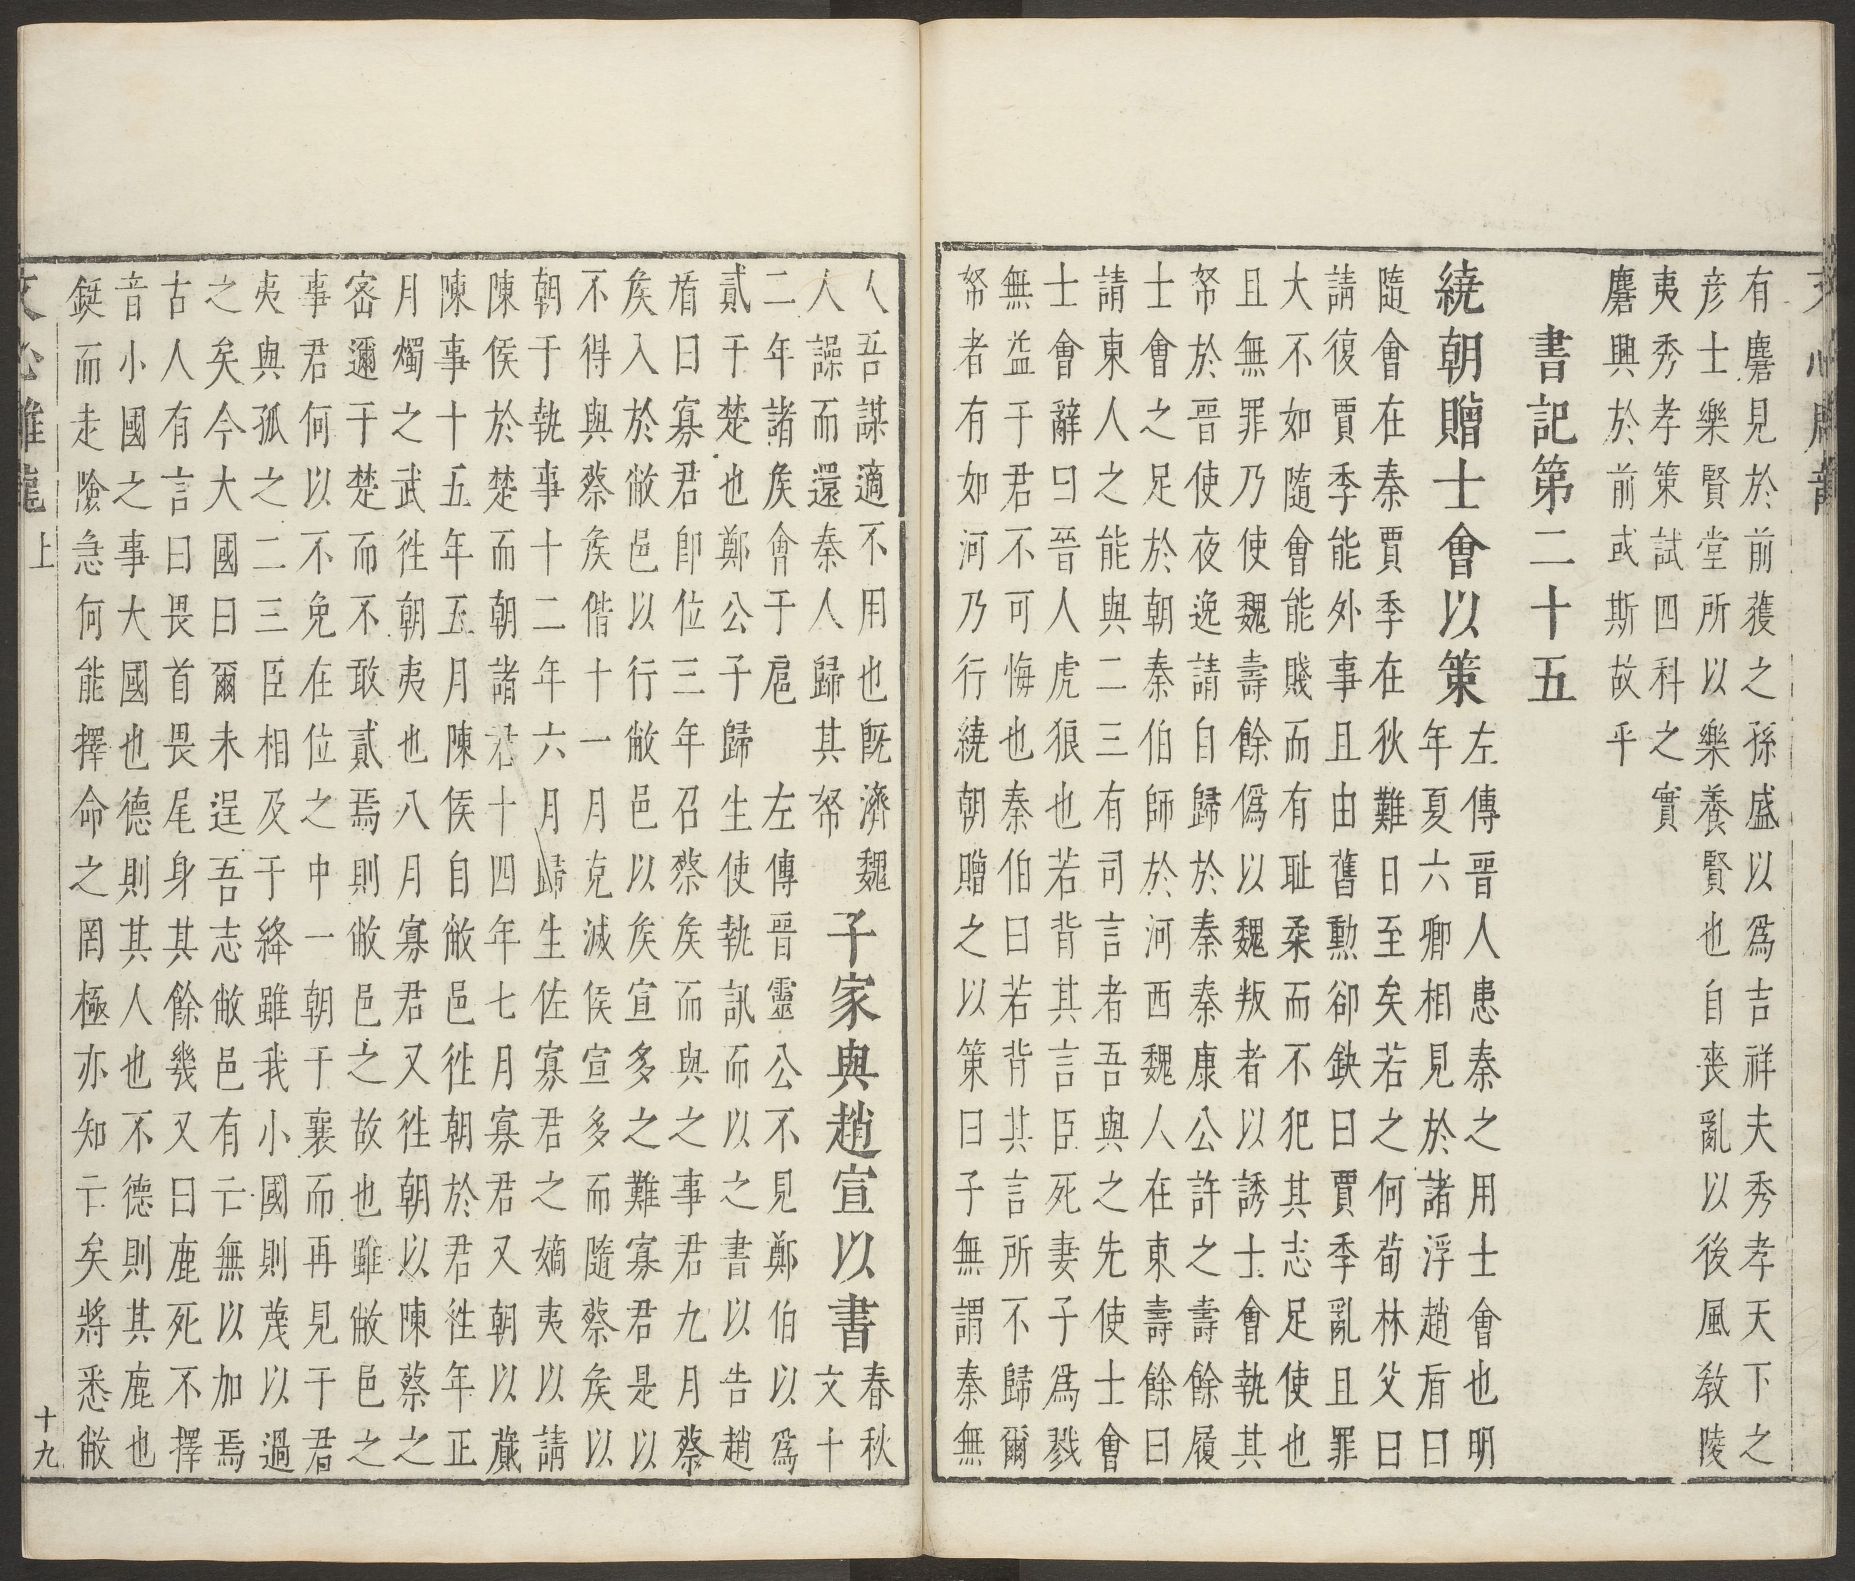 有麏見於前獲之孫盛以爲吉祥夫秀孝天下之
彦士樂賢堂所以樂養賢也自喪亂以後風敎陵
夷秀孝策試四科之實
麏興於前或斯故乎
書記第二十五
繞朝贈士會以策
左傳晉人患秦之用士會也明
年夏六卿相見於諸浮趙盾曰
隨會在秦賈季在狄難日至矣若之何荀林父曰
請復賈季能外事且由舊勲卻缺曰賈季亂且罪
大不如隨會能賤而有耻柔而不犯其志足使也
且無罪乃使魏壽餘僞以魏叛者以誘士會執其
帑於晉使夜逸請自歸於秦秦康公許之壽餘履
士會之足於朝秦伯師於河西魏人在東壽餘曰
請東人之能與二三有司言者吾與之先使士會
士會辭曰晉人虎狼也若背其言臣死妻子爲戮
無益于君不可悔也秦伯曰若背其言所不歸爾
帑者有如河乃行繞朝贈之以策曰子無謂秦無
人吾謀適不用也旣濟魏
人譟而還秦人歸其帑
子家與趙宣以書
春秋
文十
二年諸矦會于扈
左傳晉靈公不見鄭伯以爲
貳于楚也鄭公子歸生使執訊而以之書以告趙
盾曰寡君卽位三年召蔡矦而與之事君九月蔡
矦入於敝邑以行敝邑以矦宣多之難寡君是以
不得與蔡矦偕十一月克減侯宣多而隨蔡矦以
朝于執事十二年六月歸生佐寡君之嫡夷以請
陳侯於楚而朝諸君十四年七月寡君又朝以蕆
陳事十五年五月陳侯自敝邑徃朝於君徃年正
月燭之武徃朝夷也八月寡君又徃朝以陳蔡之
宻邇于楚而不敢貳焉則敝邑之故也雖敝邑之
事君何以不免在位之中一朝于襄而再見于君
夷與孤之二三臣相及于絳雖我小國則蔑以過
之矣今大國曰爾未逞吾志敝邑有亡無以加焉
古人有言曰畏首畏尾身其餘幾又曰鹿死不擇
音小國之事大國也德則其人也不德則其鹿也
鋌而走險急何能擇命之罔極亦知亡矣將悉敝
上
十九